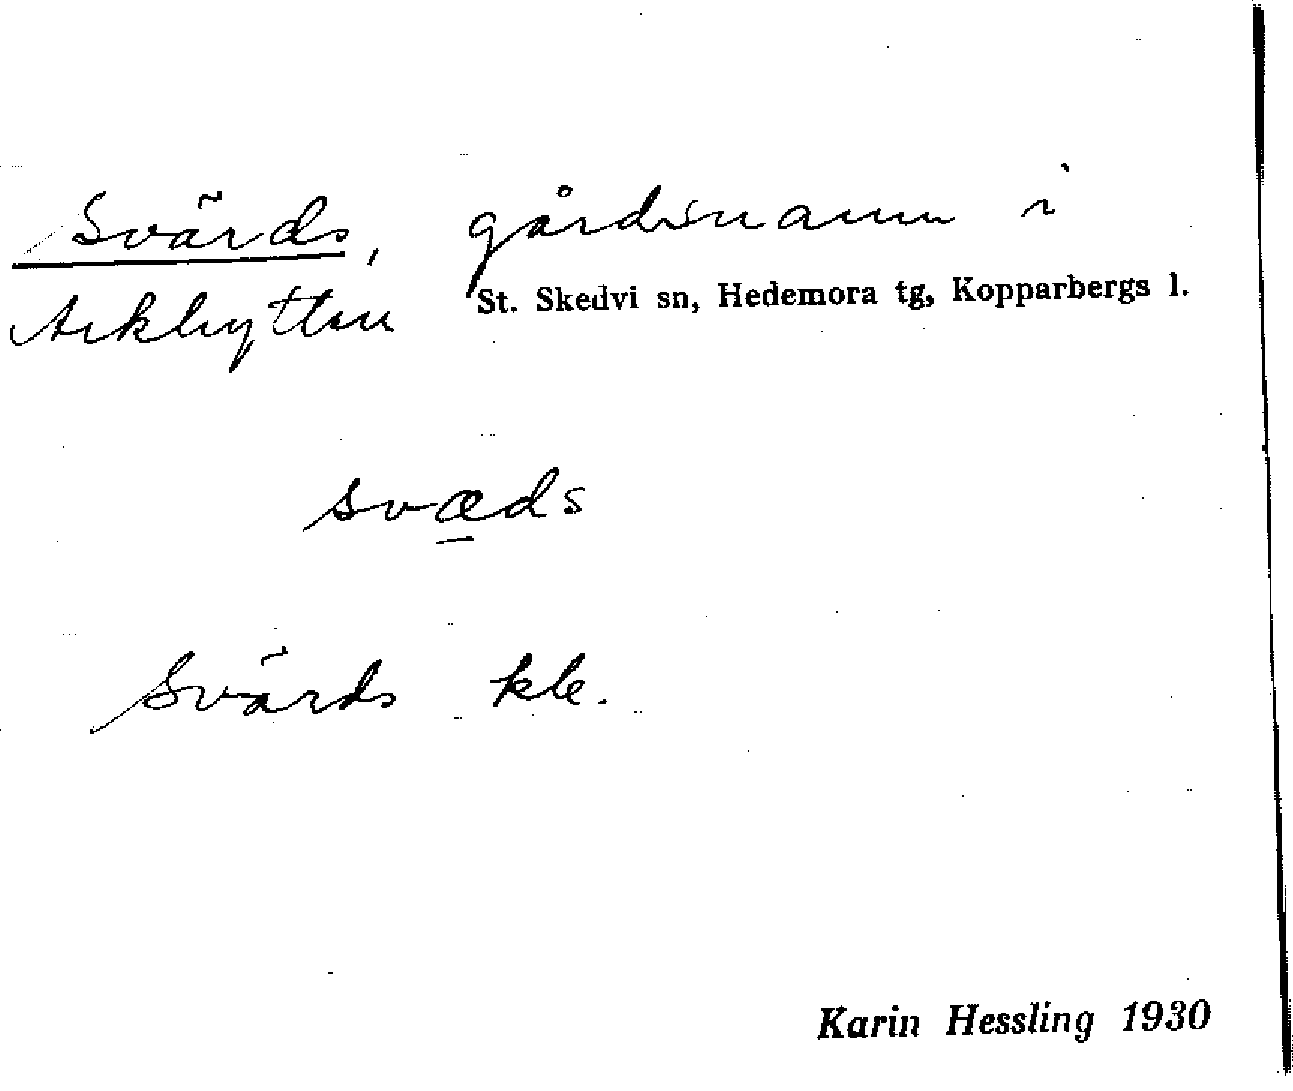 Svärds, gårdsnamn i
Arkhyttan St. Skedvi sn, Hedemora tg, Kopparbergs l.
svæds
Svärds kle.
Karin Hessling 1930